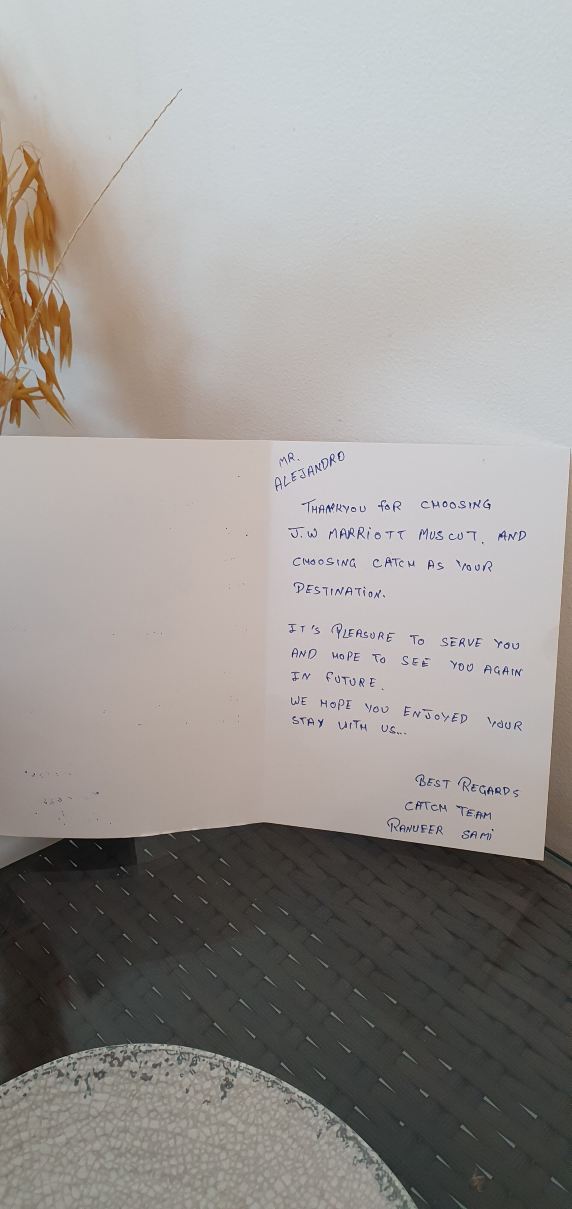 MR.
ALEJANDRO
THANKYOU FOR CHOOSING
J.W MARRIOTT MUSCUT. AND
CHOOSING CATCH AS YOUR
DESTINATION.
IT'S PLEASURE TO SERVE YOU
AND HOPE TO SEE YOU AGAIN
IN FUTURE.
WE HOPE YOU ENJOYED YOUR
STAY WITH US...
BEST REGARDS
CATCH TEAM
RANUFER SAMI